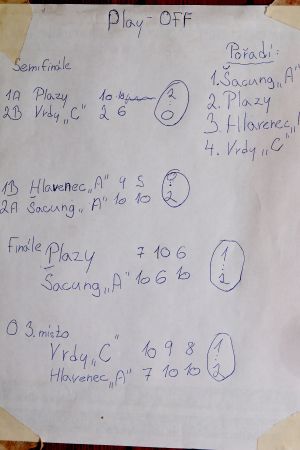 Play-OFF
Semifinále
1A Plazy 10
2
2B Vrdy „C" 2 6
0
1B Hlavenec „A" 9 5
0
2A Šacung „A" 10 10
2
Finále
Plazy 7 10 6
1
Šacung „A" 10 6 10
:1
O 3. místo
Vrdy „C" 10 9 8
1
Hlavenec „A" 7 10 10
2
Pořadí:
1. Šacung „A"
2. Plazy
3. Hlavenec „
4. Vrdy „C"